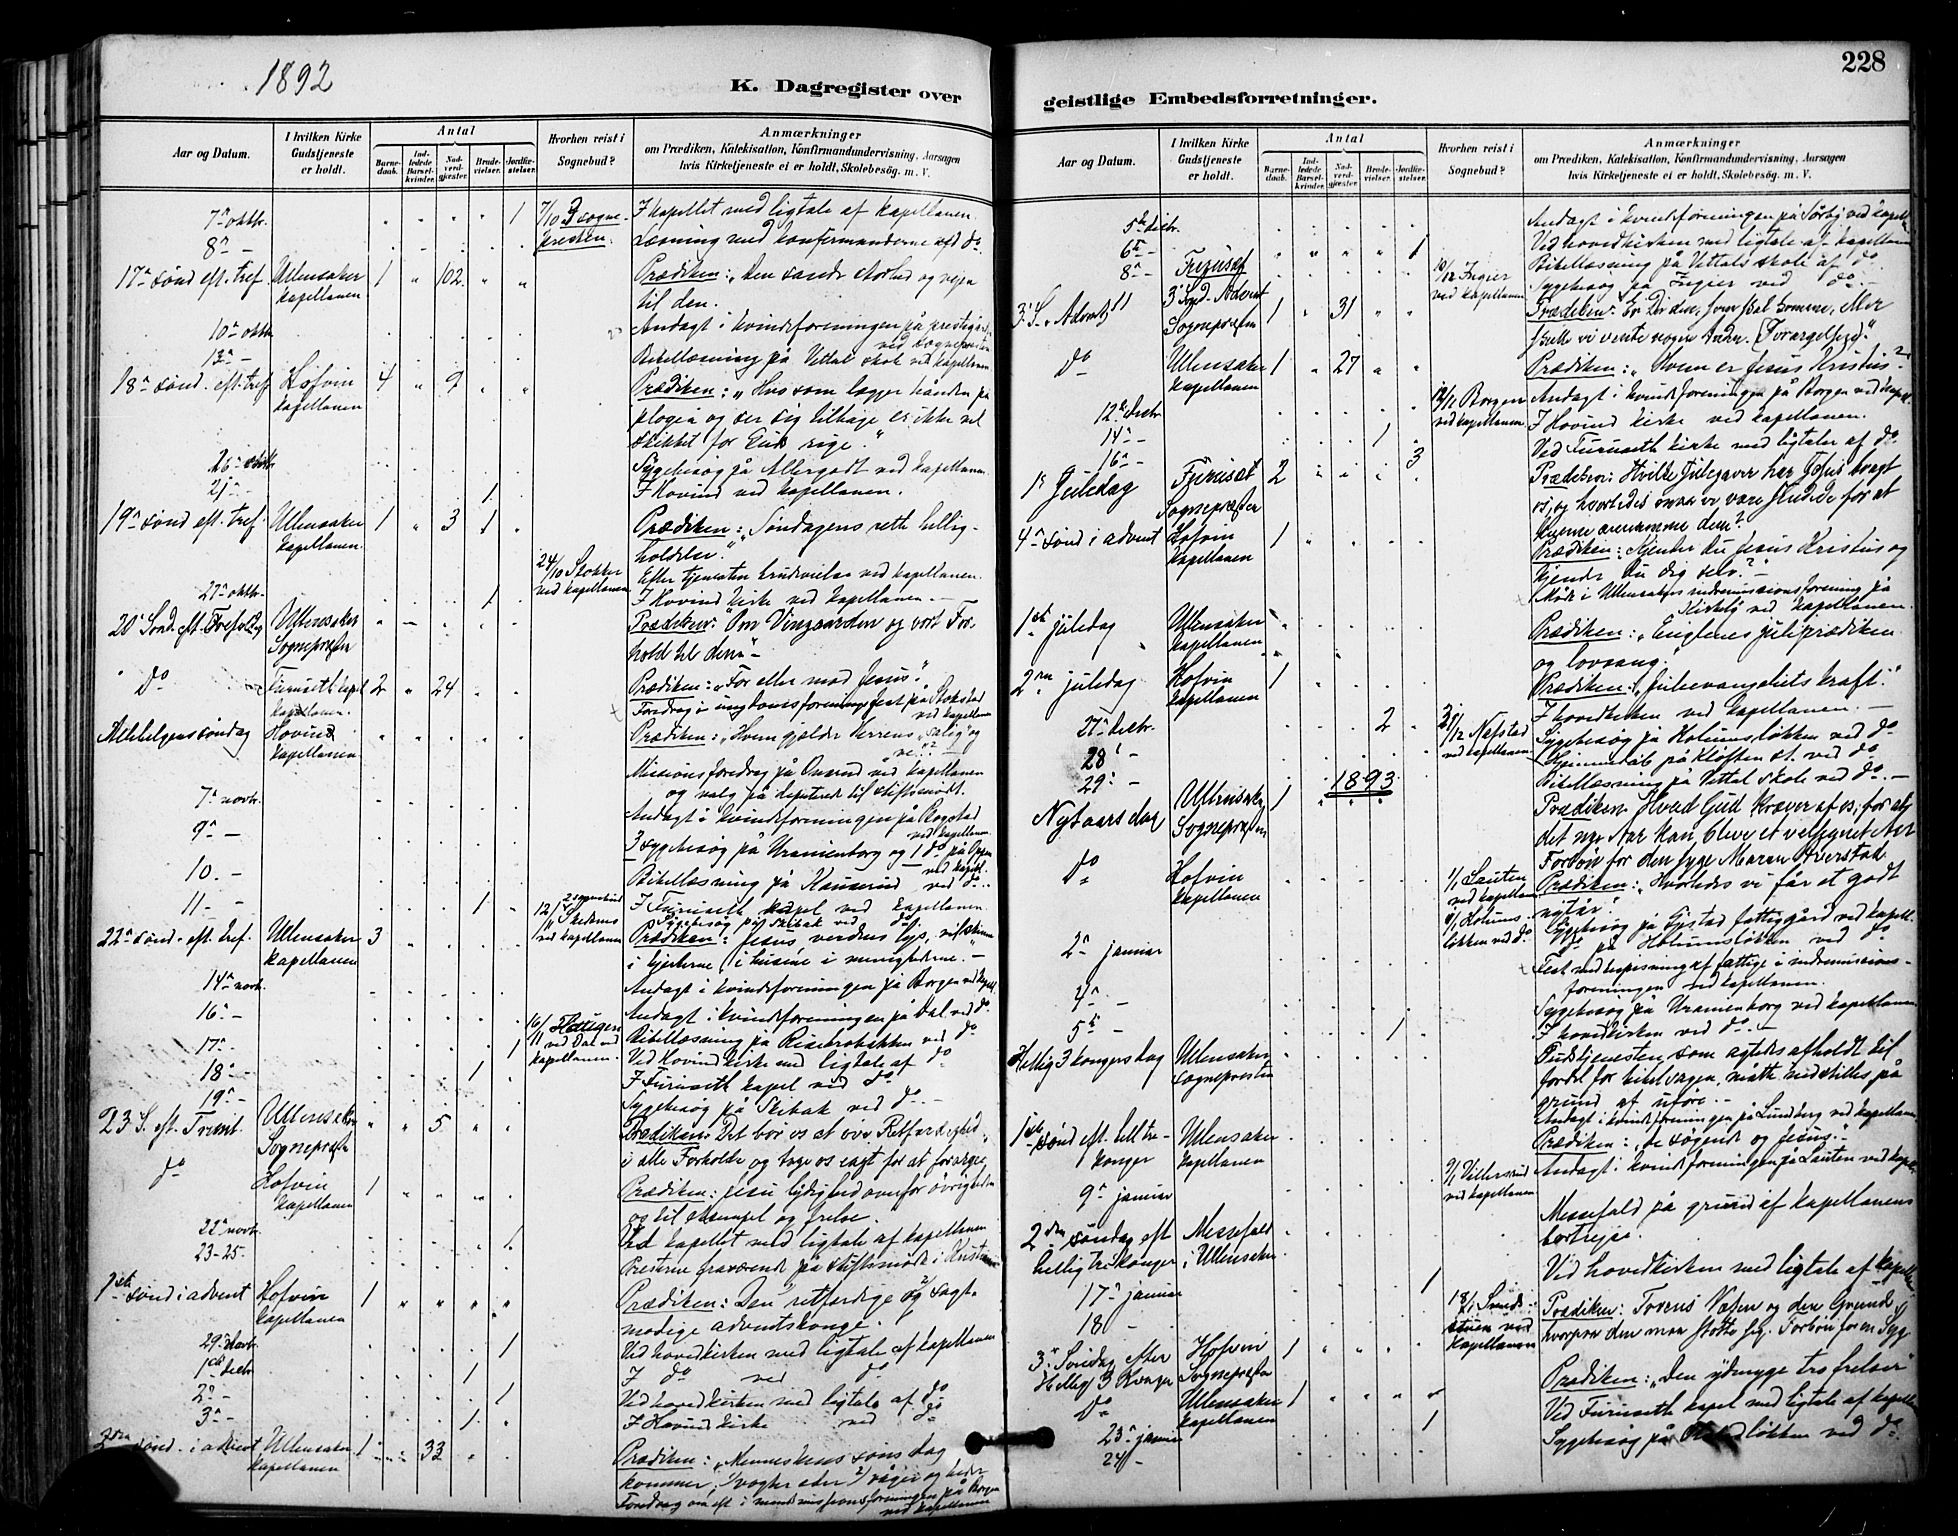 1892
K. Dagregister over
Aar og Datum.
I hvilken Kirke Gudstjeneste er holdt.
Antal
Barne-daab.
Ind-ledede Barsel-kvinder.
Nad-verd-gjæster.
Brude-vielser.
Jordfæ-stelser.
Hvorhen reist i Sognebud?
Anmærkninger
om Prædiken, Katekisation, Konfirmandundervisning, Aarsagen
hvis Kirketjeneste ei er holdt, Skolebesøg. m. V.
7de oktbr. 1 I kapellet med ligtale af kapellanen.
8de - Læsning med konfirmanderne ved do
17de sønd eft. tref. Ullensaker 1 102 Prædiken: „Den sande storhed og vejen
kapellanen til den.
10de oktbr Andagt i kvindeforeningen på prestegården
ved sognepresten
13de - Bibellæsning på Vittal skole ved kapellanen
18de sønd. eft. tref Hofvin 4 9 Prædiken: „Hvo som lægger hånden på
kapellanen plogen og ser sig tilbage er ikke vel
skikket for Guds rige"
26de oktbr Sygebesøg på Allergodt ved kapellanen
21de - 1 I Hovind ved kapellanen.
19de sønd eft. tref. Ullensaker 1 3 1 Prædiken: „Søndagens rette hellig-
kapellanen. holdelse."
24/10 Stokker Efter tjenesten brudevielse ved kapellanen.
ved kapellanen
27de oktbr. 1 I Hovind kirke ved kapellanen. -
20 Sønd. eft. Trefoldig Ullensaker Prædiken: "Om Vingaarden og vort For-
Sognepresten hold til den" -
Do Furuseth kapel 2 24 Prædiken: „For eller mod Jesus."
kapellanen. Foredrag i ungdomsforeningens fest på Stokstad
ved kapellanen
Allehelgenssøndag Hovind Prædiken: „Hvem gjælder Herrens „salig" og
kapellanen „ve"?
Missionsforedrag på Onsrud ved kapellanen
og valg på deputerede til stiftsmødet.
7de novbr. Andagt i kvindeforeningen på Rogstad
ved kapellanen.
9de - 3 sygebesøg på Uranienborg og 1 do på Oppen
ved kapel.
10. - Bibellæsning på Kauserud ved do.
11 - 1 I Furuseth kapel ved kapellanen
Sygebesøg på Skibak ved do.
22de sønd. eft. tref. Ullensaker 3 Prædiken: Jesus verdens lys, vil skinne
kapellanen i hjerterne, i husene i menighederne. -
14de novbr. Andagt i kvindeforeningen på Borgen ved kapell.
16de - Andagt i kvindeforeningen på Dal ved do
17de - 1 Bibellæsning på Risebrobakken ved do
ved Dal ved Ved Hovind kirke med ligtale af do
kapellanen.
18de - 1 I Furuseth kapel ved do.
19de - Sygebesøg på Skibak ved do. -
23 S. eft. Trinit. Ullensaker 5 Prædiken: Det bør os at øve Retfærdighed
Sognepresten i alle Forholde og tage os iagt for at forarges
do Hofvin 1 Prædiken: Jesu lydighed ovenfor øvrigheden
kapellanen os til eksempel og frelse.
22de novbr. 1 Ved kapellet med ligtale af kapellanen
23-25. Presterne fraværende på stiftsmøde i Kristiania
1ste sønd i advent Hofvin 1 Prædiken: „Den 1/ retfærdige og 2/ sagt-
kapellanen modige adventskonge.
29. novbr. 1 Ved hovedkirken med ligtale af kapellanen
1ste decbr 1 I do ved do
2de - 1 Ved hovedkirken med ligtale af do
3de - 1 I Hovind kirke ved do
2den sønd. i advent Ullensaker 1 33 Prædiken: „Menneskens søns dag
kapellanen kommer, 1/ vogter eder 2/ våger og beder
Foredrag om eft. i indremissionsforeningen på Borgen
ved kapellanen
228
geistlige Embedsforretninger.
Aar og Datum.
I hvilken Kirke Gudstjeneste er holdt.
Antal
Barne-daab.
Ind-ledede Barsel-kvinder.
Nad-verd-gjæster.
Brude-vielser.
Jordfæ-stelser.
Hvorhen reist i Sognebud?
Anmærkninger
om Prædiken, Katekisation, Konfirmandundervisning, Aarsagen
hvis Kirketjeneste ei er holdt, Skolebesøg. m. V.
5te decbr. Andagt i kvindeforeningen på Sørby ved kapell.
6te - 1 Ved hovedkirken med ligtale af kapellanen
8de - Bibellæsning på Vittals skole af do.
10/12 Ingier Sygebesøg på Ingier ved do. -
ved kapellanen
3. S. i Advent 11 Furuset 1 31 Prædiken: Er Du den, som skal komme, eller
3. Sønd. Advent
Sognepresten skulle vi vente nogen Anden. (Forargelsen)."
do Ullensaker 1 27 Prædiken: „Hvem er Jesus Kristus?"
kapellanen
12te decbr. Borgen Andagt i kvindeforeningen på Borgen ved kapell.
ved kapellanen
14de - 1 I Hovind kirke ved kapellanen.
16de - 3 Ved Furuseth kirke med ligtaler af do.
1ste Juledag Furuset 2 Prædiken: Hvilke Julegaver har Jesus bragt
Sognepresten os, og hvorledes maa vi være skikkede for at
kunne annamme dem?
4de sønd i advent Hofvin 1 Prædiken: „Kjender du Jesus Kristus og
kapellanen kjender du dig selv?" -
Møde i Ullensakers indremissionsforening på
Kirkeby ved kapellanen.
1ste juledag Ullensaker Prædiken: „Englenes juleprædiken
kapellanen og lovsang."
2den juledag Hofvin 1 Prædiken: „Juleevangeliets kraft."
kapellanen
27de decbr. 2 31/12 Nefstad I hovedkirken ved kapellanen. -
ved kapellanen
28 - Sygebesøg på Holumsløkken ved do
Hjemmedåb på Kløften st. ved do
29de - Bibellæsning på Vittal skole ved do. -
1893
Nytaarsdag Ullensaker 1 Prædiken. Hvad Gud kræver af os, for at
Sognepresten det nye Aar kan blive et velsignet Aar
Forbøn for den syge Maren Averstad
do Hofvin 1/1 Lauten Prædiken: „Hvorledes vi får et godt
kapellanen ved kapellanen nytår."
1/1 Holums- Sygebesøg på Gystad fattiggård ved kapell.
løkken ved do. do på Holumsløkken ved do
2de januar Fest med bespisning af fattige i indremissions-
foreningen ved kapellanen.
4de - Sygebesøg på Uranienborg ved kapellanen
5te - 1 I hovedkirken ved do. -
Hellig 3 kongers dag Ullensaker Gudstjenesten, som agtedes afholdt til
sognepresten fordel for bibelsagen, måtte indstilles på
grund af uføre. -
Andagt i kvindeforeningen på Lundberg ved kapellanen.
1ste sønd eft. hell. tre- Ullensaker Prædiken: „De søgende og Jesus." -
konger kapellanen
9de januar 9/1 Hillersrud Andagt i kvindeforeningen på Lauten ved kapel.
ved kapellanen
2den søndag eft Messefald Messefald på grund af kapellanens
hellig tre konger i Ullensaker bortrejse.
17de januar 1 Ved hovedkirken med ligtale af kapellan
18 -
kapellanen
3. Søndag efter Hofvin 1 Prædiken: Troens Væsen og den Grund
Hellig 3 Konger Sognepresten hvorpaa den maa støtte sig. Forbøn for en Syg
Do Ullensaker 1 Prædiken: „Den ydmyge tros frelser"
kapellanen
23de januar 1 Ved Furuseth kapel med ligtale af kapellan
24 - Sygebesøg på løkken ved do